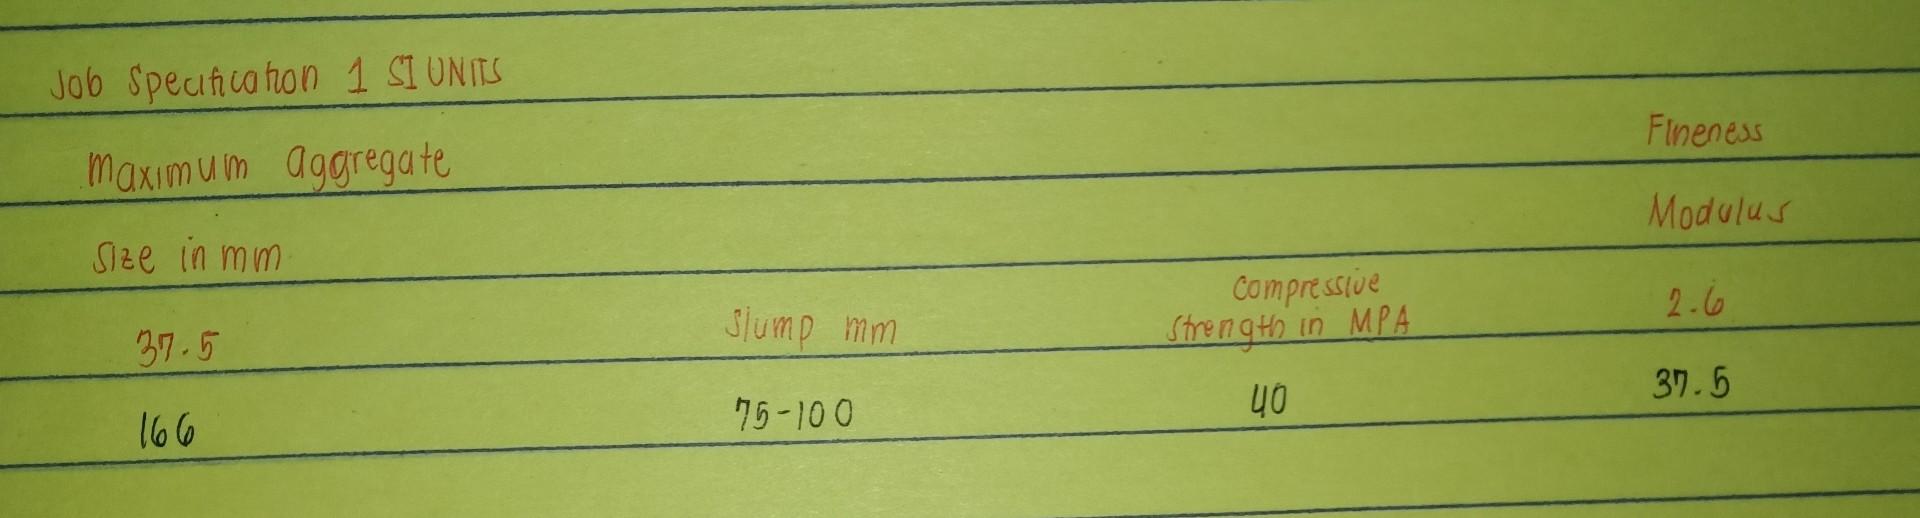 Job Specification 1 SI UNITS
Maximum aggregate
Fineness
Size in mm
Modulus
37.5
Slump mm
Compressive
strength in MPA
2.6
166
75-100
40
37.5